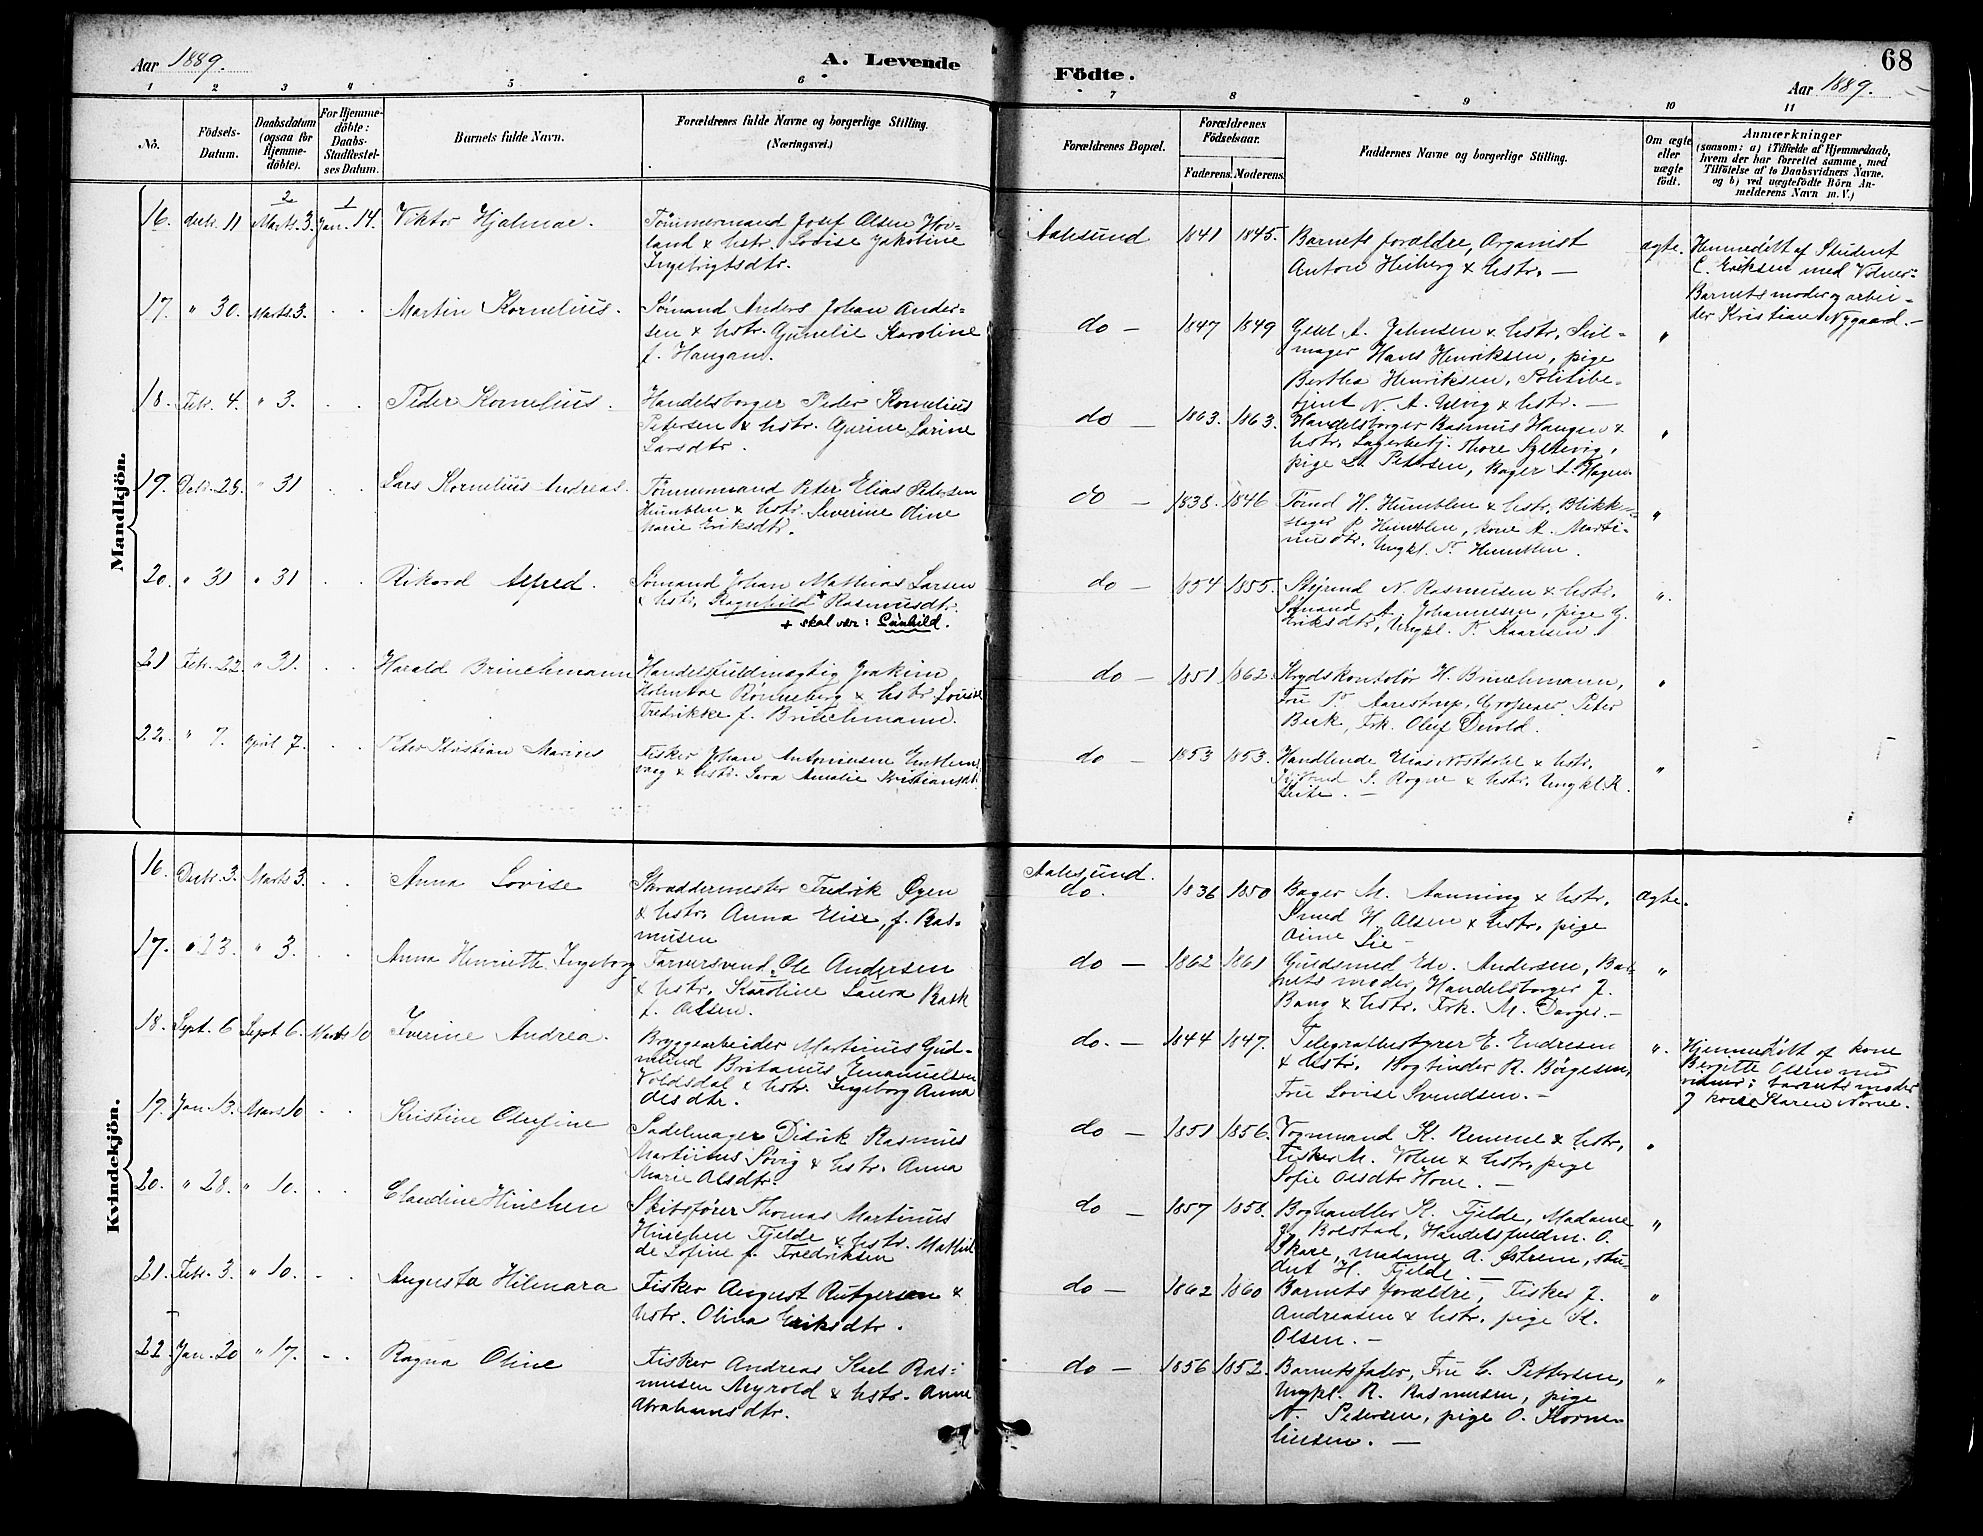 Aar 1889.
A. Levende
Födte.
68
Aar 1889.
1 2 3 4 5 6 7 8 9 10 11
No.
Födsels-
Datum.
Daabsdatum
(ogsaa for
Hjemme-
döbte).
For Hjemme-
döbte:
Daabs-
Stadfestel-
ses Datum.
Barnets fulde Navn.
Forældrenes fulde Navne og borgerlige Stilling.
(Næringsvei.)
Forældrenes Bopæl.
Forældrenes
Födselsaar.
Faderens. Moderens.
Faddernes Navne og borgerlige Stilling.
Om ægte
eller
uægte
födt.
Anmærkninger
(saasom: a) i Tilfælde af Hjemmedaab,
hvem der har forrettet samme, med
Tilföielse af to Daabsvidners Navne.
og b) ved uægtefödte Börn An-
melderens Navn m. V.)
Mandkjön.
16. decbr. 11 Marts 3. Jan. 14. Viktor Hjalmar
Tömmermand Josef Olsen Hov-
land & hstr. Lovise Jakobine
Ingebrigtsdtr.
Aalesund 1841 1845.
Barnets forældre, Organist
Anton Heiberg & hstr. —
ægte.
Hjemmedöbt af Student
C. Eriksen med Vidner:
Barnets moder og arbei-
der Kristian Nygaard. —
17. " 30. Marts 3. . . Martin Kornelius.
Sömand Anders Johan Ander-
sen & hstr. Gunelie Karoline
f. Haugan.
do — 1847 1849
A. Johnsen & hstr, Seil-
mager Hans Henriksen, pige
Bertha Henriksen, Politibe-
tjent N. A. Ulvig & hstr. —
"
18. Feb. 4. " 3. . . Peder Kornelius.
Handelsborger Peder Kornelius
Petersen & hstr. Gurine Larine
Larsdtr.
do — 1863. 1863.
Handelsborger Rasmus Haugen &
hstr, Lagerbetj. Thore
pige L. Petersen, Bager L. Hagen.
"
19. Decbr. 28. " 31 . . Lars Kornelius Andreas.
Tömmermand Peter Elias Petersen
Humblen & hstr. Severine Oline
Marie Eriksdtr.
do — 1838. 1846
Tömd H. Humblen & hstr, Blikken-
slager P. Humblen, kone A. Marti-
nusdtr. Ungkl. P. Humblen.
"
20. " 31 " 31 . . Rikard Alfred.
Sömand Johan Mathias Larsen
& hstr, Ragnhild + Rasmusdtr.
+ skal vær: Gunhild.
do — 1854 1855.
N. Rasmussen & hstr,
Sömand A. Johannesen, pige G.
Eriksdtr, Ungkl. P. Kaarsen.
".
21 Febr. 22. " 31. . . Harald Brinchmann
Handelsfuldmægtig Joakim
Holmboe Rönneberg & hstr. Louise
Fredrikke f. Brinchmann.
do — 1851 1862.
Krydskontolör H. Brinchmann,
Fru P. Aarestrup, Grosserer Peter
Beck, Frk. Oluf Devold.
"
22. " 7. April 7. . . Peter Kristian Marius
Fisker Johan Antoniusen Emblem-
vaag & hstr. Sara Amalie Kristiansdtr.
do — 1853 1853.
Handlende Elias Nordal & hstr,
S. Rogne & hstr, Ungkl. K.
Leite. —
"
Kvindekjön.
16. Decbr. 3. Marts 3. . . Anna Lovise
Skræddermester Fredrik Öyen
& hstr, Anna Elise, f. Ras-
musen
Aalesund.
do. 1836 1850
Bager M. Aanning & hstr,
Smed H. Olsen & hstr, pige
Oline Lie —
ægte.
17. " 23. " 3. . . Anna Henriette Ingeborg
Farversvend Ole Andersen
& hstr, Karoline Laura Bask
f. Olsen.
do — 1862 1861
Guldsmed Edv. Andersen, Bar-
nets moder, Handelsborger J.
Bang & hstr. Frk. M. Dorges. —
"
18. Sept. 6 Sept 6. Marts 10 Iverine Andrea.
Bryggearbeider Martinus Gud-
mund Britanus Emanuelsen
Voldsdal & hstr. Ingeborg Anna
Olsdtr.
do. — 1844 1847.
Telegrafbestyrer E. Endresen
& hstr, Bogbinder R. Börgesen,
Fru Lovise Svendsen. —
".
Hjemmedöbt af kone
Birgitte Olsen med
vidner: barnets moder
og kone Karen Norve.
19. Jan. 13. Marts 10 . . Kristine Olufine
Sadelmager Didrik Rasmus
Martinus Sövig & hstr. Anna
Marie Olsdtr.
do — 1851 1856.
Vognmand K. Remme & hstr,
Fisker M. Volen & hstr, pige
Sofie Olsdtr Hove. —
"
20. " 28. " 10. . . Claudine Hinchen
Skibsförer Thomas Martinus
Hinchen Fjelde & hstr. Mathil-
de Sofine f. Fredriksen
do — 1857 1858.
Boghandler K. Fjelde, Madame
J. Bolstad, Handelsfuldm. O.
Skare, madame A. Östrem, stu-
dent H. Fjelde. —
"
21. Febr. 3. " 10. - . Augusta Hilmara
Fisker August Rutgersen &
hstr. Olina Eriksdtr.
do — 1862 1860
Barnets forældre, Fisker J.
Andreasen & hstr, pige K.
Olsen. —
"
22. Jan. 20 " 17. - . Ragna Oline
Fisker Andreas Karl Ras-
musen Myrold & hstr. Anne
Abrahamsdtr.
do — 1856 1852.
Barnets fader, Fru C. Pettersen,
Ungkl. R. Rasmusen, pige
N. Pedersen, pige O. Korne-
liusen. —
"